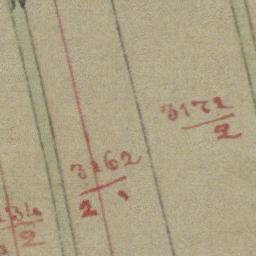 3172
2
3262
2
2